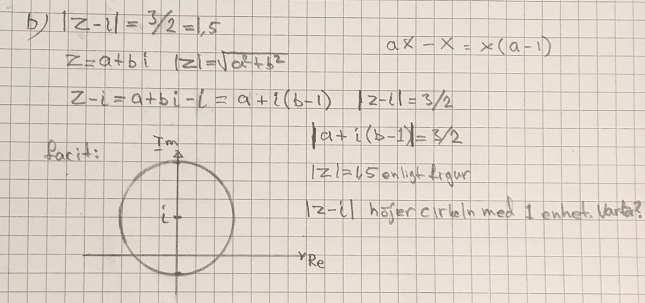 b) |z-i| = 3/2 = 1,5
ax - x = x(a-1)
z = a+bi |z| = √a²+b²
z-i = a+bi-i = a+i(b-1) |z-i| = 3/2
|a+i(b-1)| = 3/2
facit:
Im
i
Re
|z|=1,5 enligt figur
|z-i| höjer cirkeln med 1 enhet. Varför?